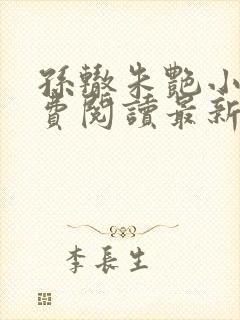 孫轍朱艷小
費閱讀最新
李長生